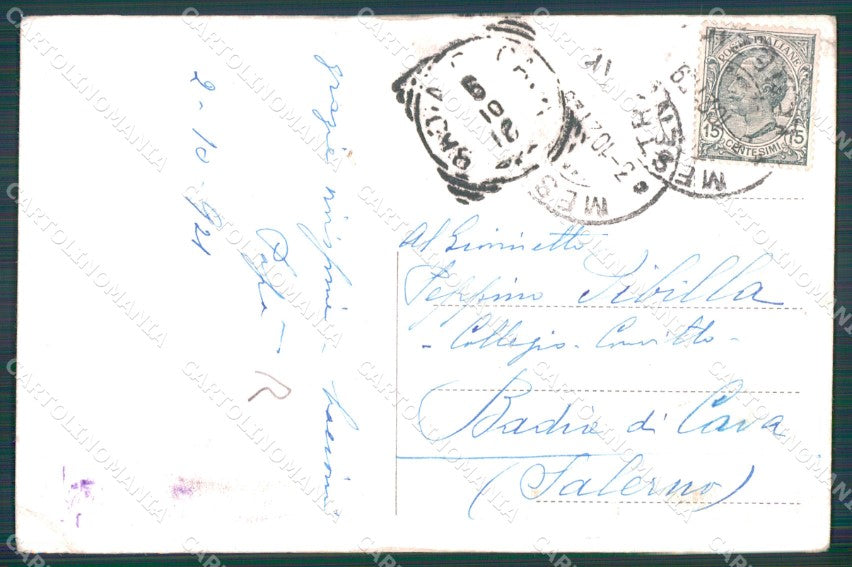 Grazie infinite - bacioni
Papà -
R
2-10-921
POSTE ITALIANE
15 15
CENTESIMI
MESTRE
2-10 21
BADIA CAVA
Al Giovinetto
Peppino Sibilla
- Collegio - Convitto -
Badia di Cava
(Salerno)
CARTOLINOMANIA